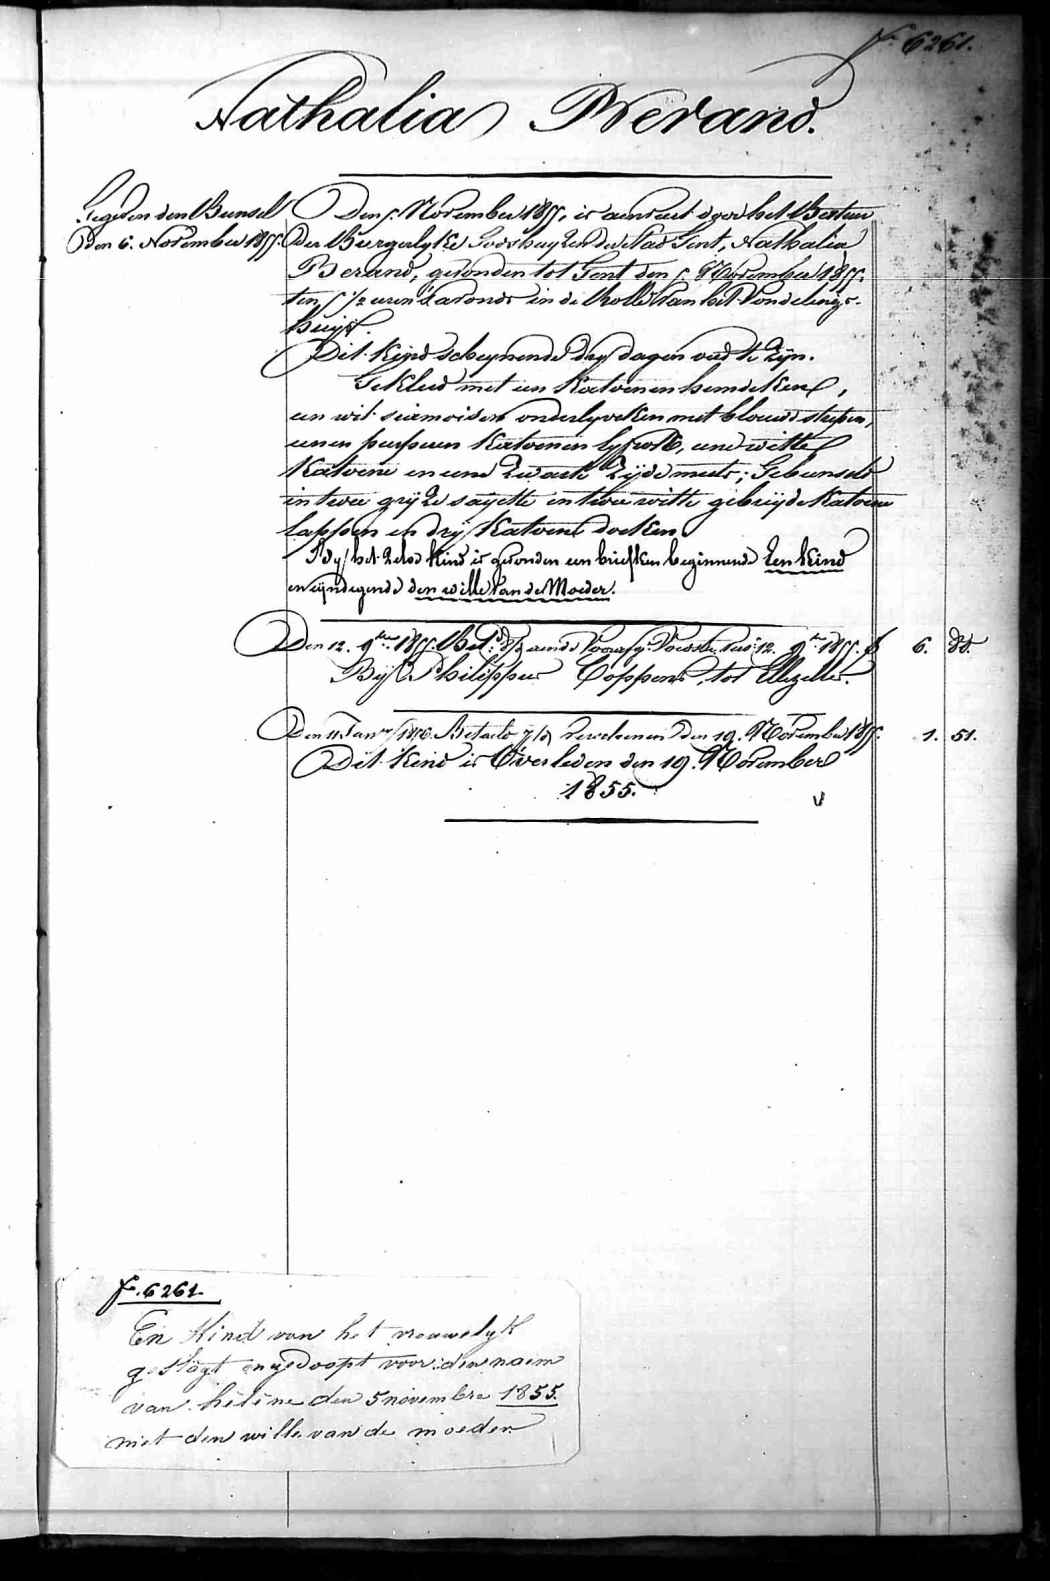 fo. 6261.
Nathalia Berand.
Gegeven den Bunsel
den 6. November 1855.
Den 5. November 1855, is aenveert door het Bestuer
der Burgerlyke Godshuyzen der Stad Gent, Nathalia
Berand, gevonden tot Gent den 5. November 1855.
ten 5 1/2 uren 's avonds in de Rolle van het Vondelings-
huys.
Dit Kind schynende dry dagen oud te zyn.
Gekleed met een Katoenen hemdeken,
een wit siamoisen onderlyveken met blauwe strepen,
eenen purperen Katoenen lyfrok, eene witte
Katoene en eene zwarte zyde muts; Gebunseld
in twee gryze sayette en twee witte gebreyde Katoene
lappen en dry Katoene doeken.
By het zelve Kind is gevonden een briefken beginnende Een Kind
en eyndegende den wille van de Moeder.
Den 12. 9ber. 1855. 12. 9ber 1855. 6. 88.
By Philippus Coppens, tot Ellezelles.
Den 11. Janry 1856. Betaeld den 19. November 1855. 1. 51.
Dit Kind is Overleden den 19. November
1855.
fo. 6261.
En Kind van het vrouwelyk
geslagt en gedoopt voor den naem
van héléne den 5 novembre 1855.
met den wille van de moeder